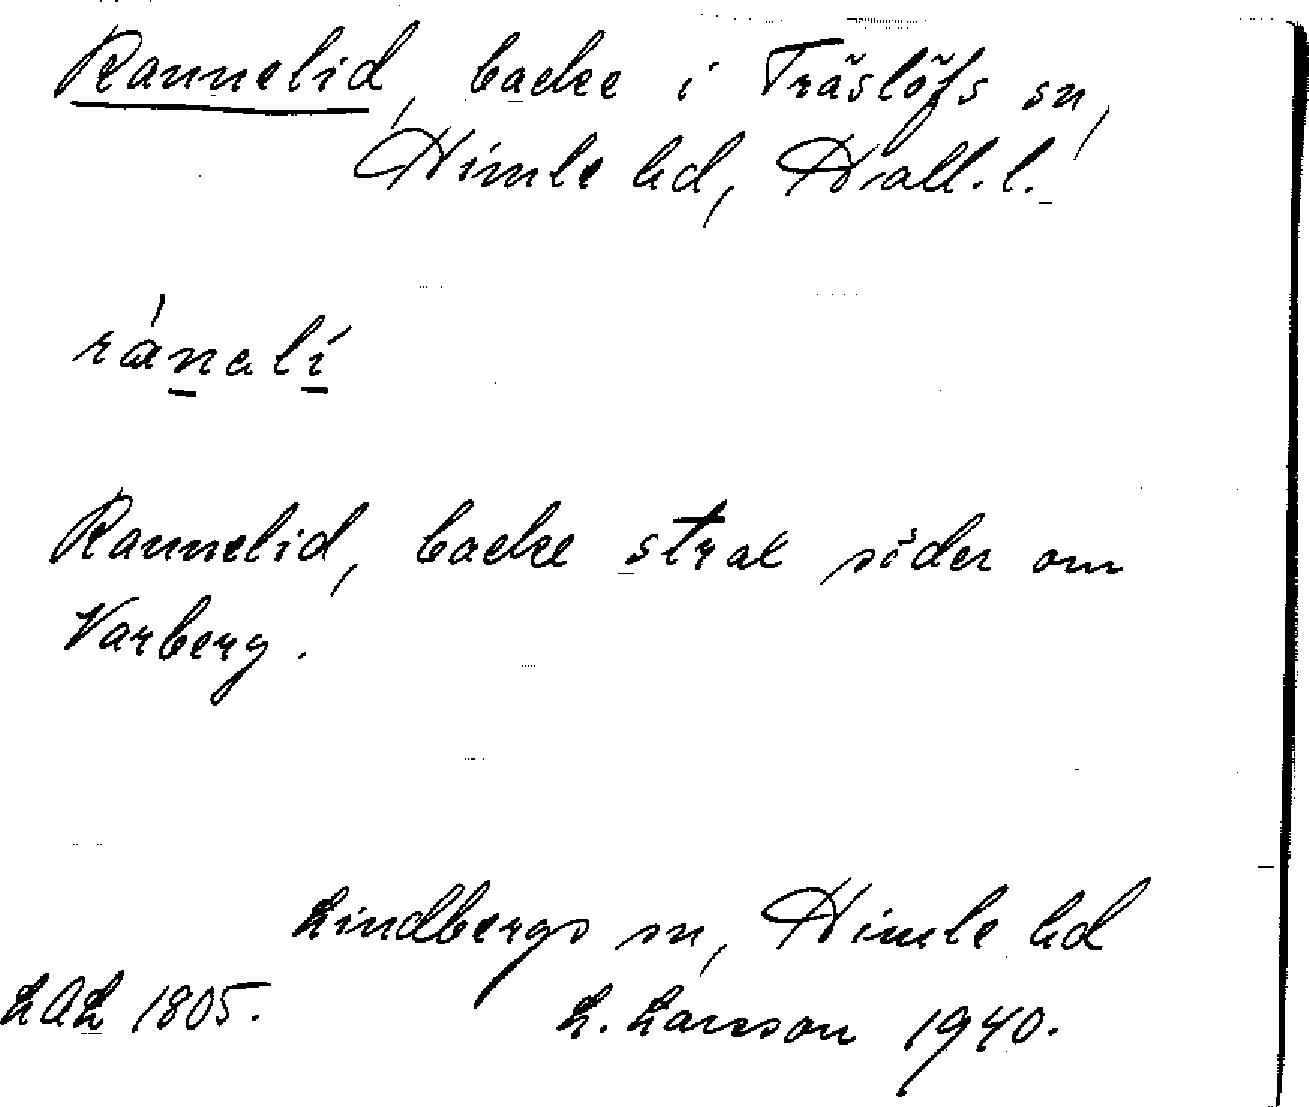 Rannelid, backe i Träslöfs sn,
Himle hd, Hall.l.
ránalí
Rannelid, backe strax söder om
Varberg.
Lindbergs sn, Himle hd
LAL 1805.
L. Larsson 1940.